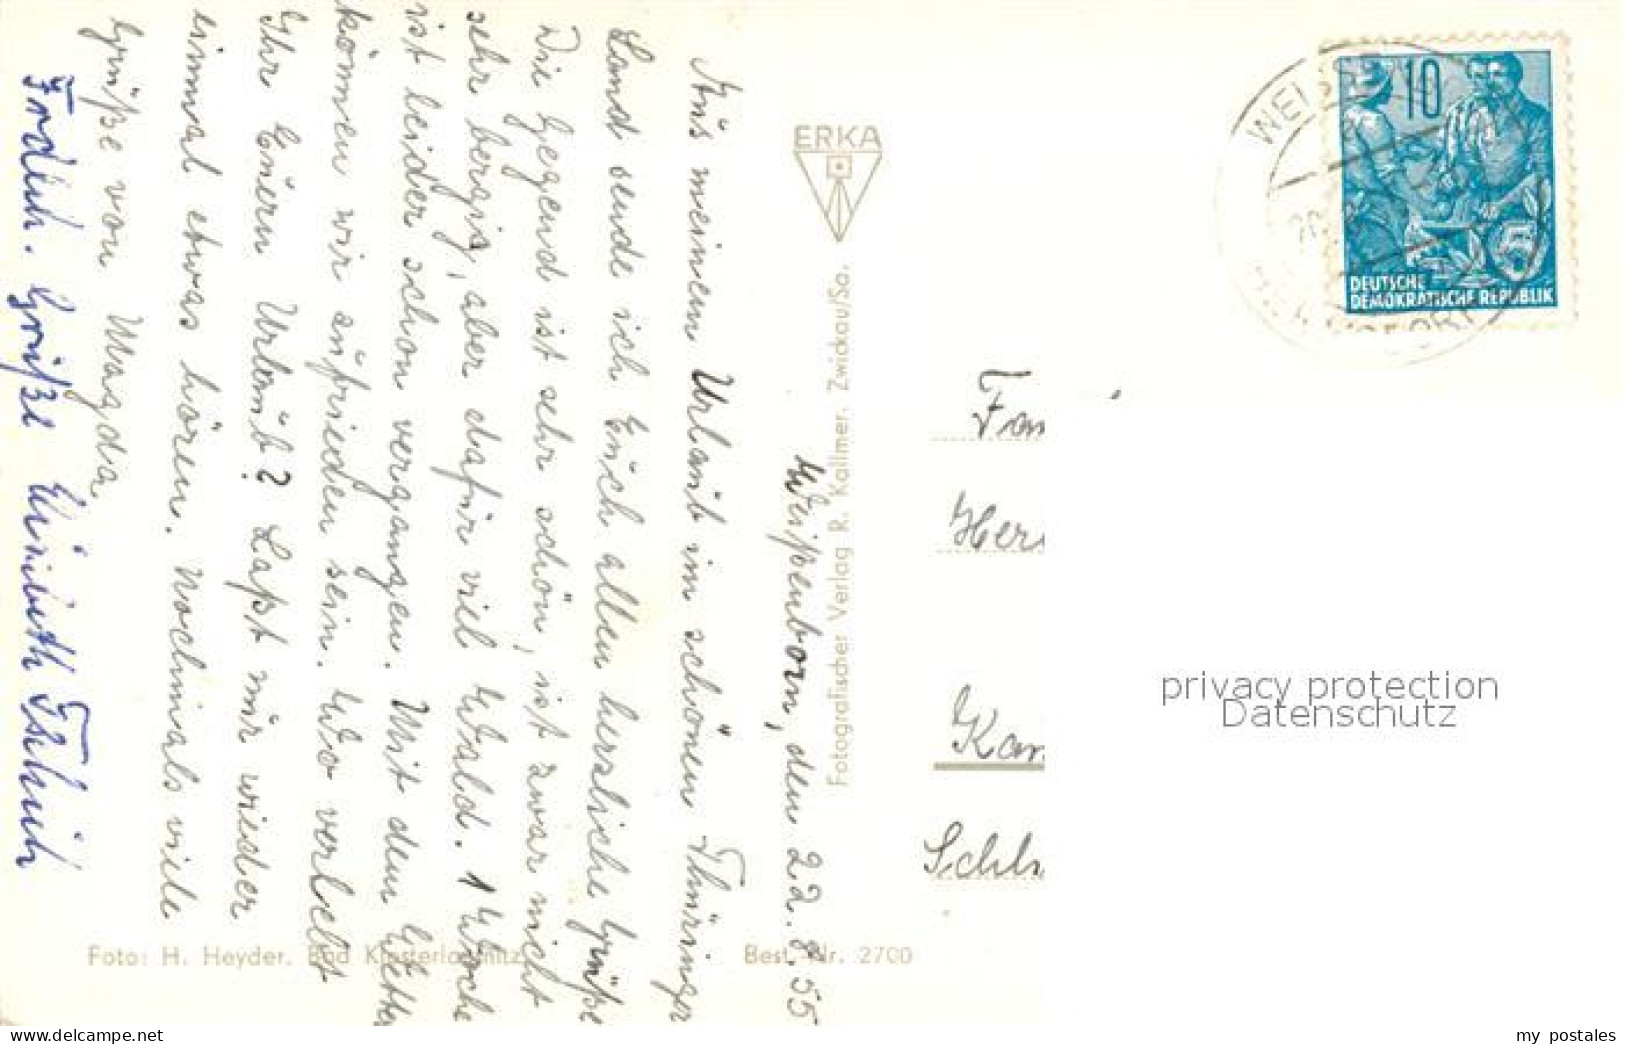 Weißenborn, den 22.8.55
Aus meinem Urlaub im schönen Thüringer
Land sende ich Euch allen herzliche Grüße
Die Gegend ist sehr schön, ist zwar nicht
sehr bergig, aber dafür viel Wald. 1 Woche
ist leider schon vergangen. Mit dem Wetter
können wir zufrieden sein. Wo verlebt
Ihr Euern Urlaub? Laßt mir wieder
einmal etwas hören. Nochmals viele
Grüße von Magda
Grüße
ERKA
Fotografischer Verlag R. Kallmer, Zwickau/Sa.
Foto: H. Heyder, Bad Klosterlausnitz
Best.-Nr. 2700
10
5
DEUTSCHE
DEMOKRATISCHE REPUBLIK
Fam
Herr
Kar
Schl
privacy protection
Datenschutz
my postales